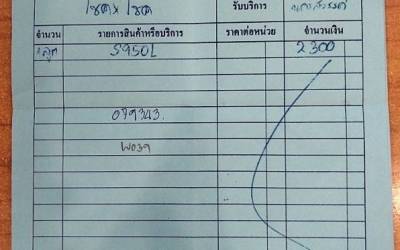 โชคx โชค รับบริการ
จำนวน รายการสินค้าหรือบริการ ราคาต่อหน่วย จำนวนเงิน
S950L 2300
079343